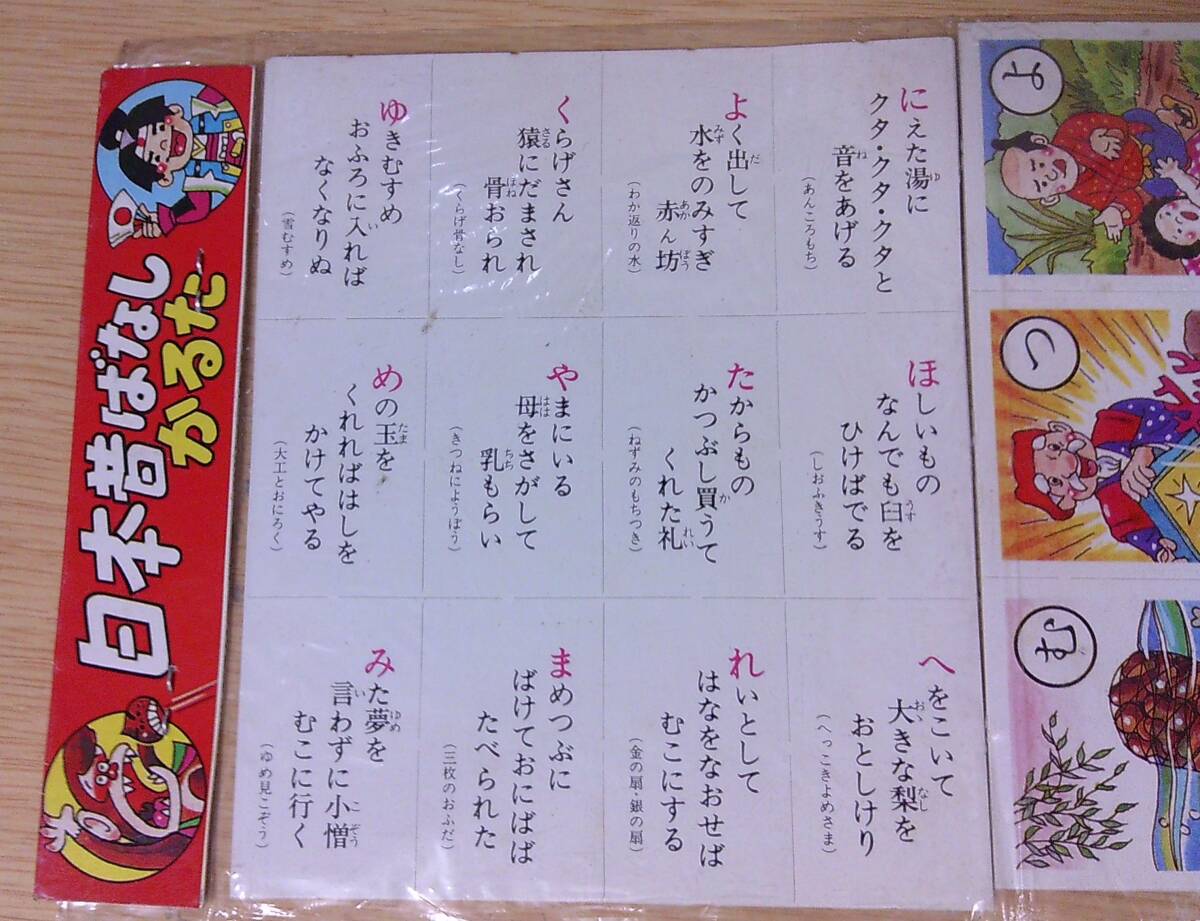 日本昔ばなし
かるた
にえた湯に
クタ・クタ・クタと
音をあげる
(あんころもち)
よく出して
水をのみすぎ
赤ん坊
(わか返りの水)
くらげさん
猿にだまされ
骨おられ
(くらげ骨なし)
ゆきむすめ
おふろに入れば
なくなりぬ
(雪むすめ)
ほしいもの
なんでも臼を
ひけばでる
(しおふきうす)
たからもの
かつぶし買うて
くれた礼
(ねずみのもちつき)
やまにいる
母をさがして
乳もらい
(きつねにょうぼう)
めの玉を
くれればはしを
かけてやる
(大工とおにろく)
へをこいて
大きな梨を
おとしけり
(へっこきよめさま)
れいとして
はなをなおせば
むこにする
(金の扇・銀の扇)
まめつぶに
ばけておにばば
たべられた
(三枚のおふだ)
みた夢を
言わずに小僧
むこに行く
(ゆめ見こぞう)
す
つ
む